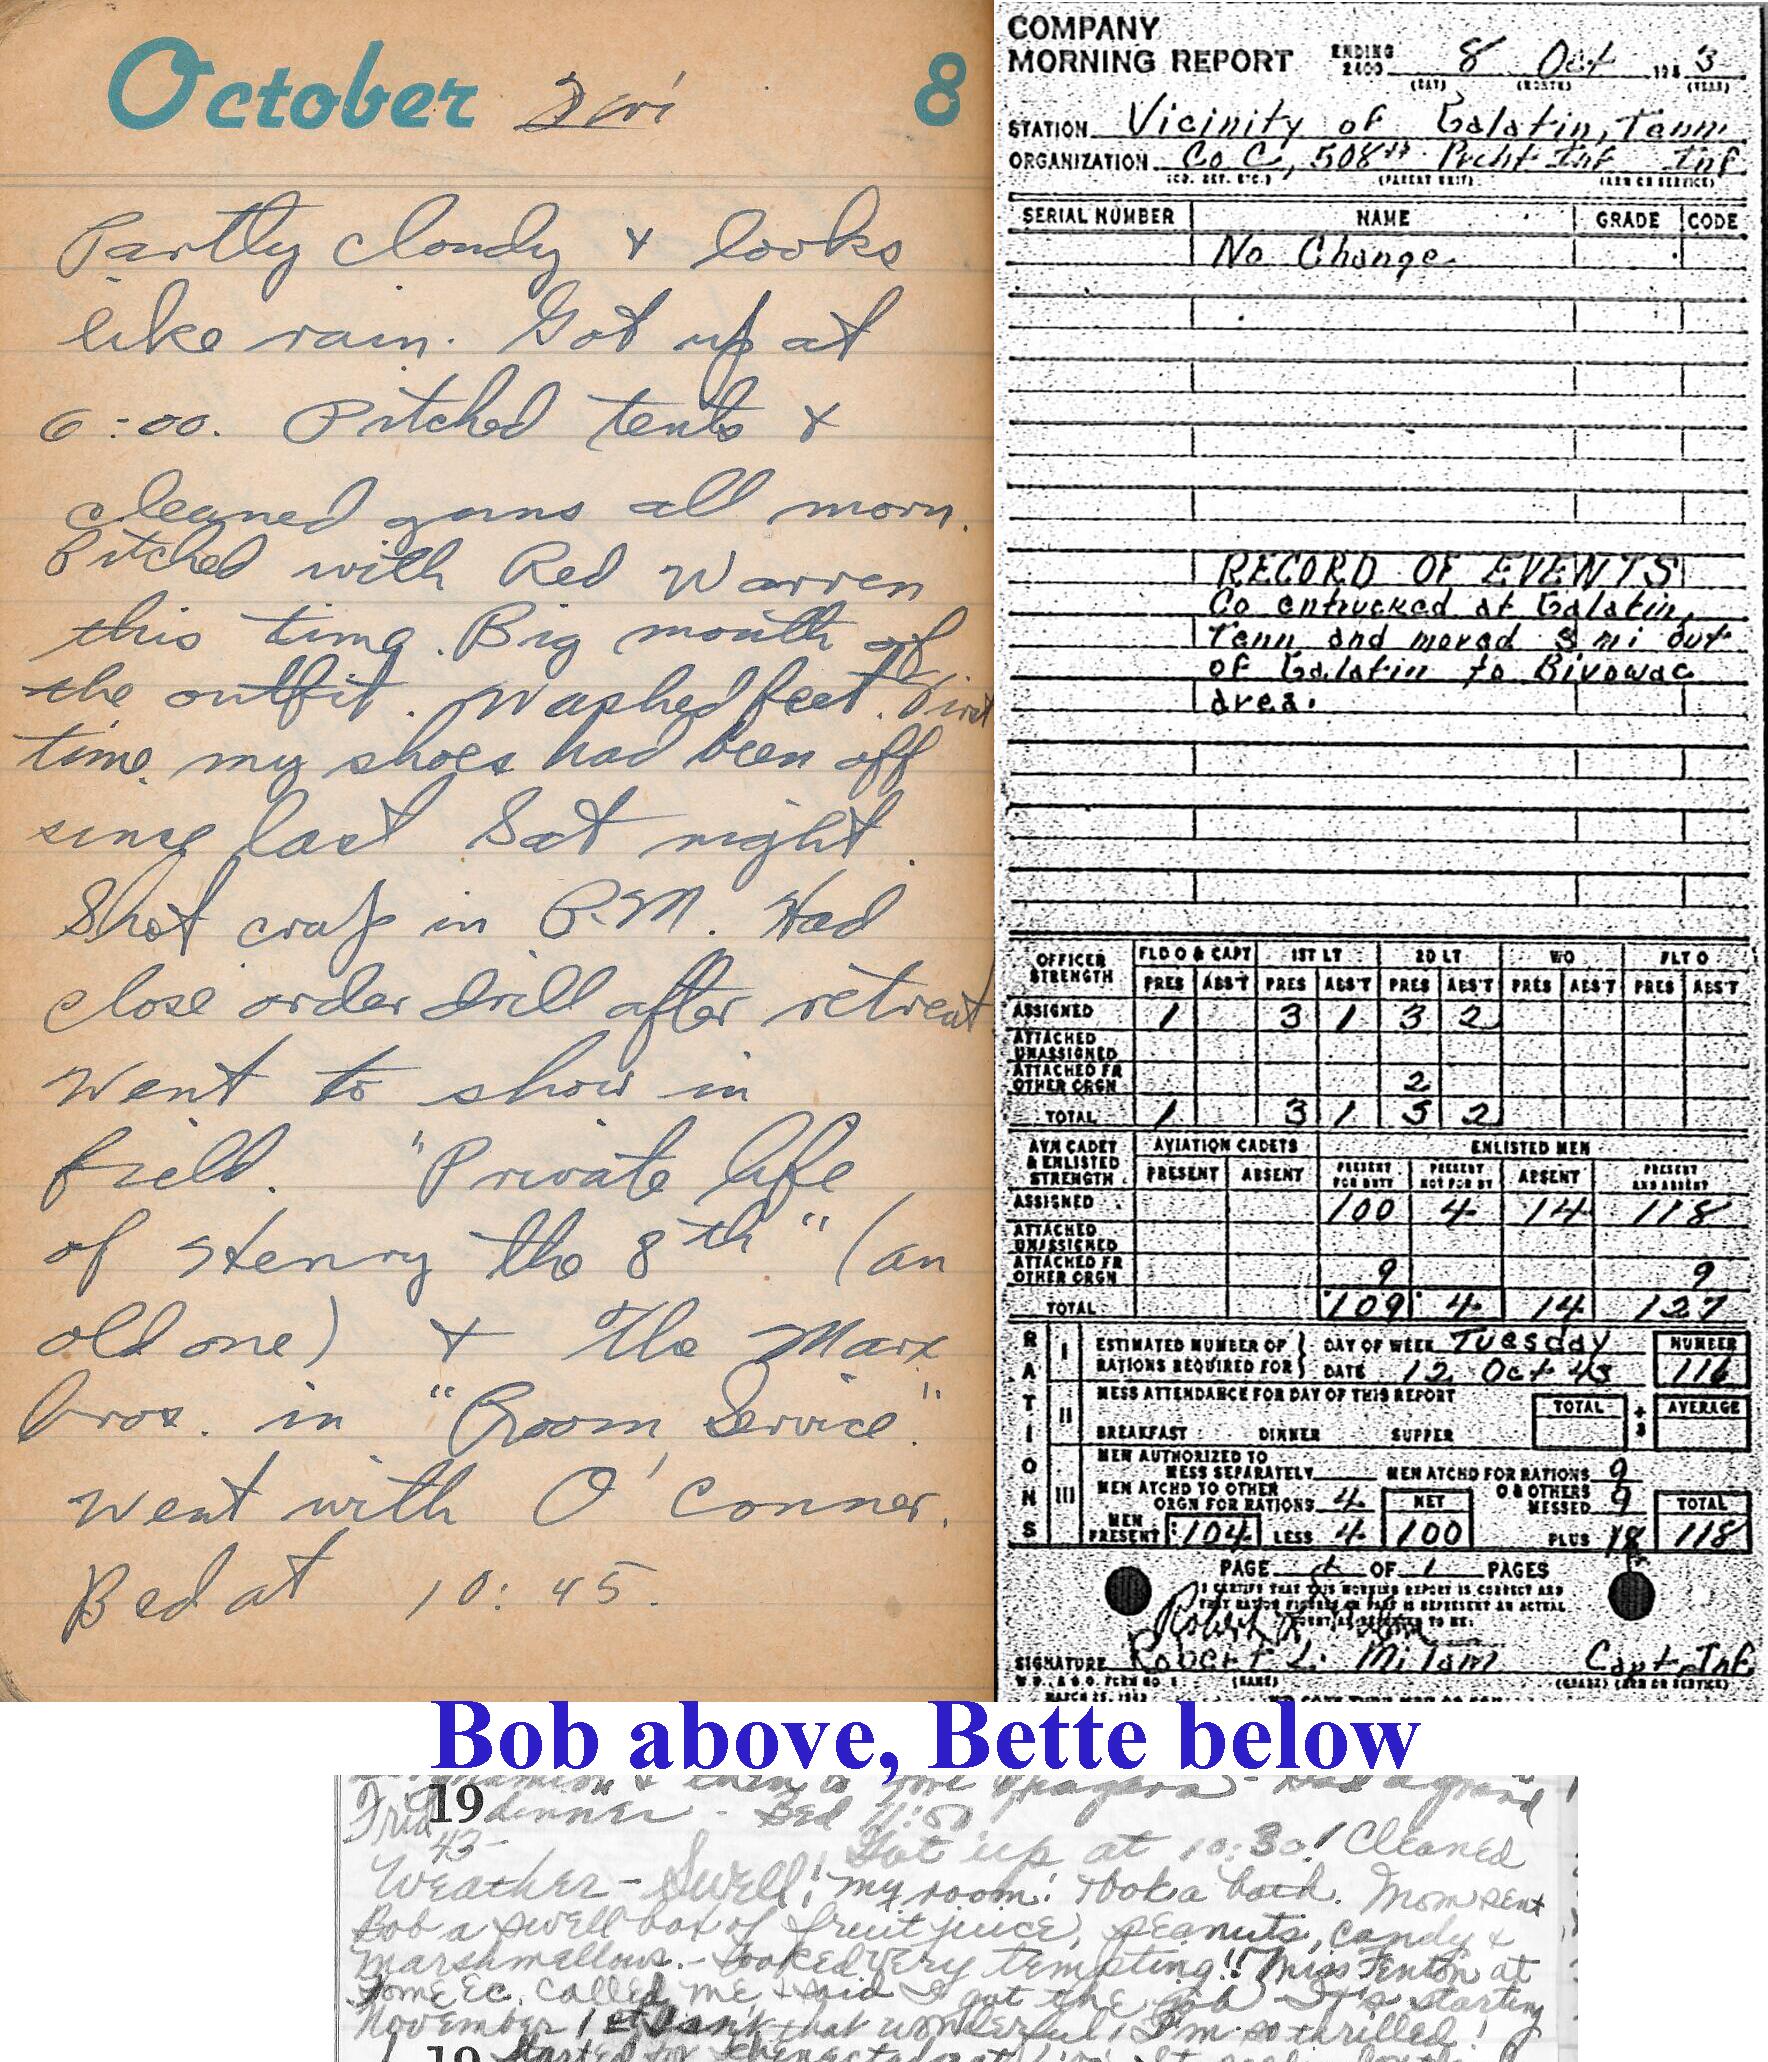 October Fri 8
Partly cloudy & looks
like rain. Got up at
6:00. Pitched tents &
cleaned guns all morn.
Pitched with Red Warren
this time. Big mouth of
the outfit. Washed feet. First
time my shoes had been off
since last Sat night.
Shot crap in P.M. Had
close order drill after retreat.
Went to show in
field. "Private life
of Henry the 8th" (an
old one) & The Marx
bros. in "Room Service".
Went with O'Conner.
Bed at 10:45.
COMPANY
MORNING REPORT ENDING 2400 8 Oct 194 3
(DAY) (MONTH) (YEAR)
STATION Vicinity of Galatin, Tenn
ORGANIZATION Co C, 508th Prcht Inf Inf
(CO. DET. ETC.) (PARENT UNIT) (ARM OR SERVICE)
SERIAL NUMBER NAME GRADE CODE
No Change
RECORD OF EVENTS
Co entrucked at Galatin,
Tenn and moved 8 mi out
of Galatin to Bivowac
area.
OFFICER STRENGTH FLD O & CAPT 1ST LT 2D LT WO FLT O
PRES ABS'T PRES ABS'T PRES ABS'T PRES ABS'T PRES ABS'T
ASSIGNED 1 3 1 3 2
ATTACHED UNASSIGNED
ATTACHED FR OTHER ORGN 2
TOTAL 1 3 1 5 2
AVN CADET & ENLISTED STRENGTH AVIATION CADETS ENLISTED MEN
PRESENT ABSENT PRESENT FOR DUTY PRESENT NOT FOR DY ABSENT PRESENT AND ABSENT
ASSIGNED 100 4 14 118
ATTACHED UNASSIGNED
ATTACHED FR OTHER ORGN 9 9
TOTAL 109 4 14 127
RATIONS
I ESTIMATED NUMBER OF RATIONS REQUIRED FOR DAY OF WEEK Tuesday NUMBER
DATE 12 Oct 43 116
II MESS ATTENDANCE FOR DAY OF THIS REPORT TOTAL ÷ 3 AVERAGE
BREAKFAST DINNER SUPPER
III MEN AUTHORIZED TO MESS SEPARATELY MEN ATCHD FOR RATIONS 9
MEN ATCHD TO OTHER ORGN FOR RATIONS 4 NET O & OTHERS MESSED 9 TOTAL
MEN PRESENT 104 LESS 4 100 PLUS 18 118
PAGE 1 OF 1 PAGES
I CERTIFY THAT THIS MORNING REPORT IS CORRECT AND
SIGNATURE Robert L. Milam Capt, Inf
(NAME) (GRADE) (ARM OR SERVICE)
Bob above, Bette below
19 dinner - Bed 11:50
Fri 43- Got up at 10:30! Cleaned
Weather - Swell! my room! Took a bath. Mom sent
Bob a swell box of fruit juice, peanuts, candy &
marshmallows. - Looked very tempting!! Miss Fenton at
Home Ec. called me & said I got the job - It's starting
November 1st. Isn't that wonderful! I'm so thrilled!
19